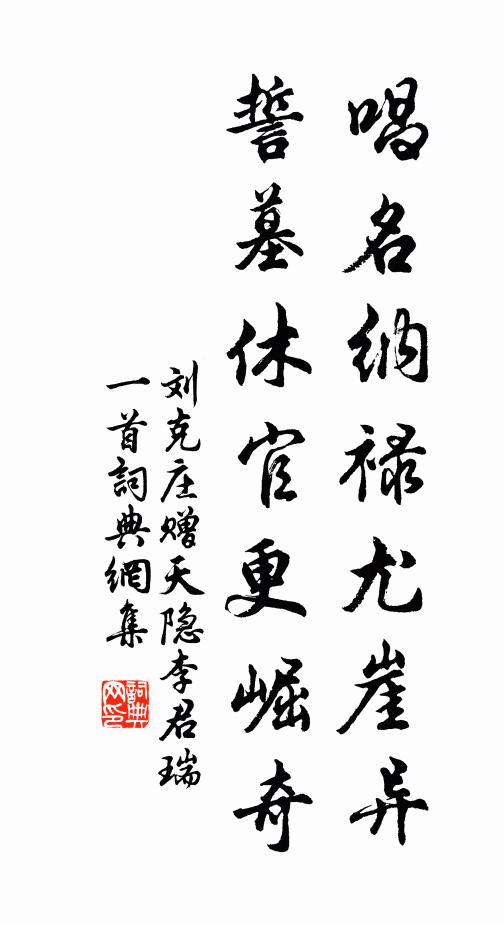 唱名纳禄尤崖异
誓墓休官更崛奇
刘克庄赠天隐李君瑞
一首詞典網集
詞典网印